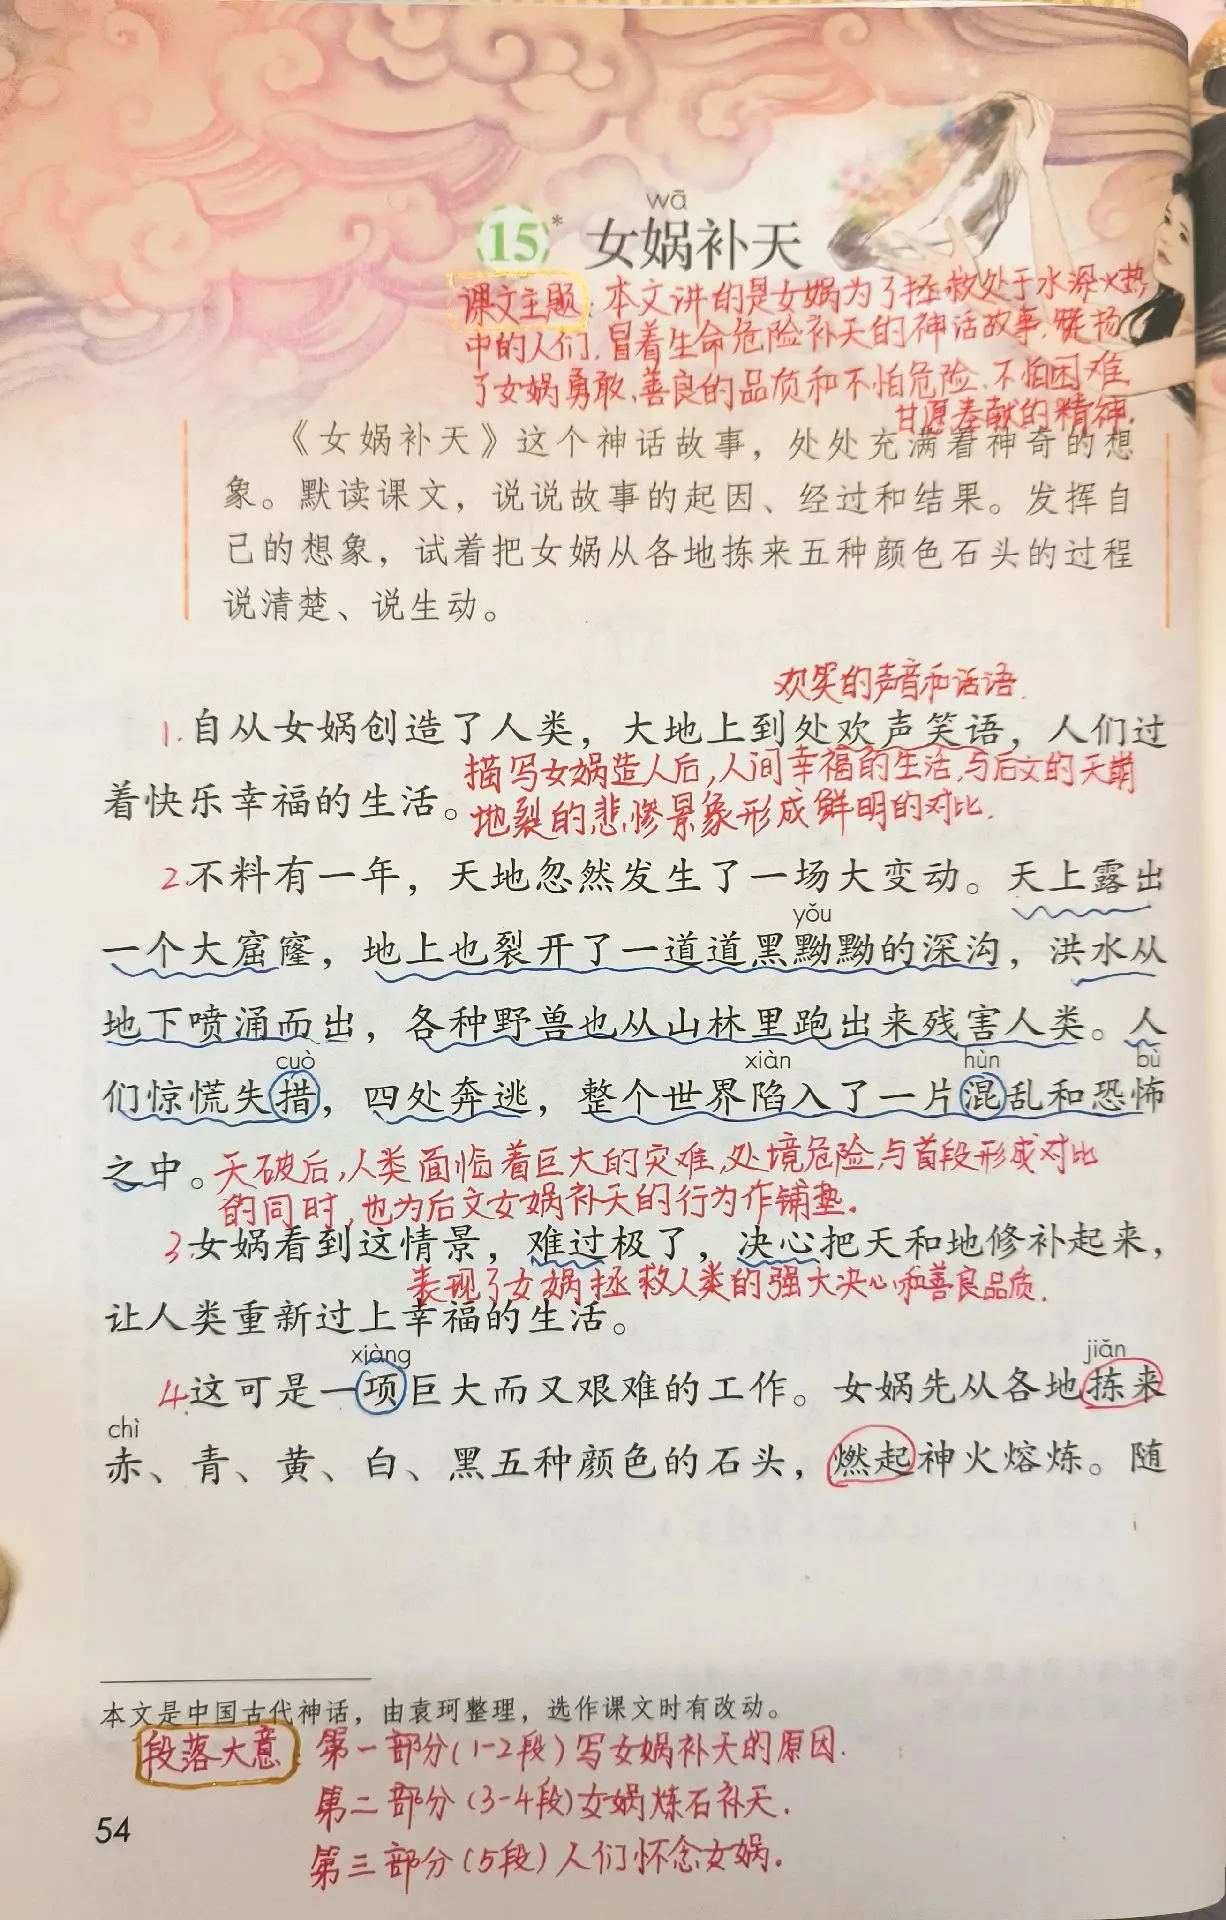 wā
15* 女娲补天
课文主题：本文讲的是女娲为了拯救处于水深火热
中的人们，冒着生命危险补天的神话故事，赞扬
了女娲勇敢、善良的品质和不怕危险、不怕困难
甘愿奉献的精神.
《女娲补天》这个神话故事，处处充满着神奇的想
象。默读课文，说说故事的起因、经过和结果。发挥自
己的想象，试着把女娲从各地拣来五种颜色石头的过程
说清楚、说生动。
欢笑的声音和话语.
1.自从女娲创造了人类，大地上到处欢声笑语，人们过
描写女娲造人后，人间幸福的生活，与后文的天崩
着快乐幸福的生活。
地裂的悲惨景象形成鲜明的对比.
2.不料有一年，天地忽然发生了一场大变动。天上露出
yǒu
一个大窟窿，地上也裂开了一道道黑黝黝的深沟，洪水从
地下喷涌而出，各种野兽也从山林里跑出来残害人类。人
cuò xiàn hùn bù
们惊慌失措，四处奔逃，整个世界陷入了一片混乱和恐怖
之中。天破后，人类面临着巨大的灾难，处境危险，与首段形成对比
的同时，也为后文女娲补天的行为作铺垫.
3.女娲看到这情景，难过极了，决心把天和地修补起来，
表现了女娲拯救人类的强大决心和善良品质.
让人类重新过上幸福的生活。
xiàng jiǎn
4.这可是一项巨大而又艰难的工作。女娲先从各地拣来
chì
赤、青、黄、白、黑五种颜色的石头，燃起神火熔炼。随
本文是中国古代神话，由袁珂整理，选作课文时有改动。
段落大意 第一部分(1-2段)写女娲补天的原因.
第二部分(3-4段)女娲炼石补天.
54
第三部分(5段)人们怀念女娲.